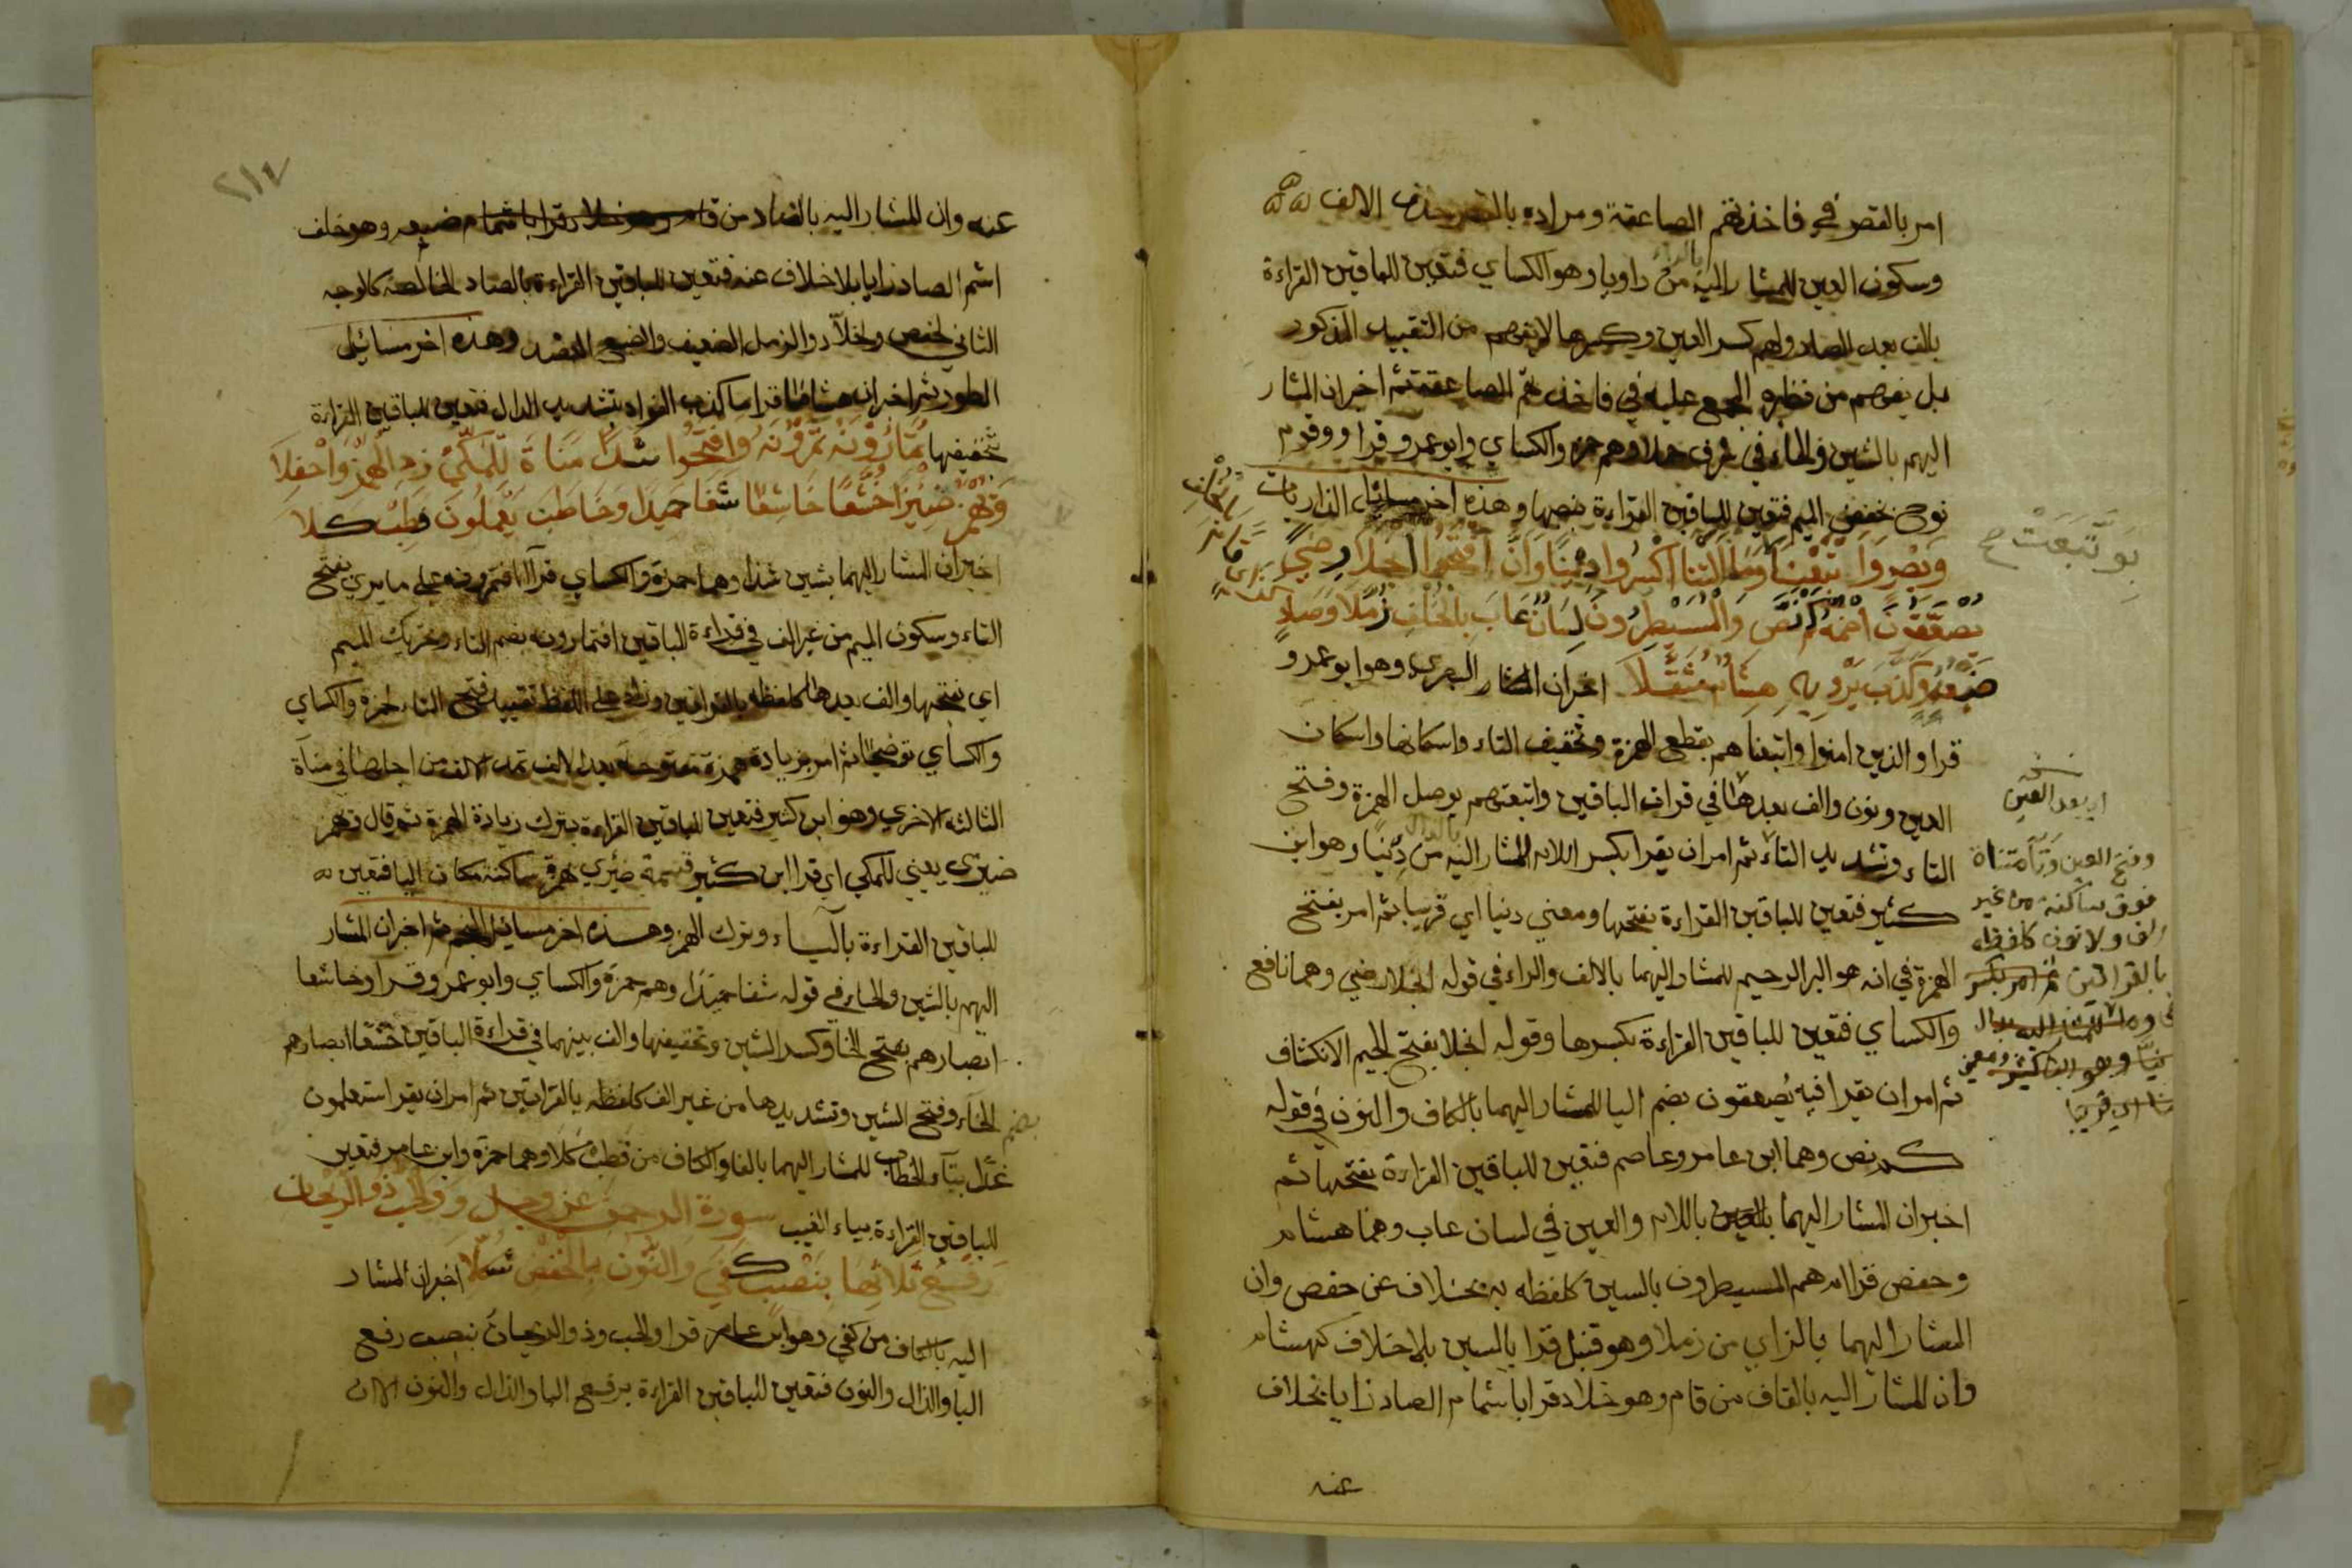 امر بالقصر في فاخذتهم الصاعقة ومراده بالقصر حذف الالف
وسكون العين للمشار اليه من راويا وهو الكساي فتعين للباقين القراءة
بالراء
بالف بعد الصاد ولهم كسر العين وكسرها لا يفهم من التقييد المذكور
بل يفهم من نظيره المجمع عليه في فاخذتهم الصاعقة ثم اخبر ان المشار
اليهم بالشين والحاء في شرف حلا وهم حمزة والكساي وابو عمرو قراوا وقوم
نوح بخفض الميم فتعين للباقين القراءة بنصبها وهذه اخر مسائل الذاريات
وَبَصْرٍ وَاَتْبَعْنَا وَمَا اَلتْنَا اكْسِرُوا دِنْيًا وَاَنَّ افْتَحُوا الْجَلَا رِضىً
يُصْعَقُونَ اضْمُمْهُ كَمْ نَصَّ وَالْمُسَيْطِرُونَ لِسَانٌ عَابَ بِالْخُلْفِ زُمَّلَا وَصَادٌ
ضَبْعُهُ وَكَذَّبَ يَرْوِيهِ هِشَامٌ مُثَقَّلَا اخبر ان المشار البصري وهو ابو عمرو
قرا والذين امنوا واتبعناهم بقطع الهمزة وتخفيف التاء واسكانها واسكان
العين ونون والف بعدها في قراة الباقين واتبعتهم بوصل الهمزة وفتح
التاء وتشديد التاء ثم امر ان يقرا بكسر اللام للمشار اليه من دنيا وهو ابن
بالدال
كثير فتعين للباقين القراءة بفتحها ومعني دنيا اي قريبا ثم امر بفتح
الهمزة في انه هو البر الرحيم للمشار اليهما بالالف والراء في قوله الجلا رضي وهما نافع
والكساي فتعين للباقين القراءة بكسرها وقوله الجلا بفتح الجيم الانكشاف
ثم امر ان يقرا فيه يُصعقون بضم اليا للمشار اليهما بالكاف والنون في قوله
كم نص وهما ابن عامر وعاصم فتعين للباقين القراءة بفتحها ثم
اخبر ان المشار اليهما بالعين باللام والعين في لسان عاب وهما هشام
وحفص قرا ام هم المسيطرون بالسين كلفظه به بخلاف عن حفص وان
المشار اليهما بالزاي من زملا وهو قنبل قرا بالسين بلا خلاف كهشام
وان المشار اليه بالقاف من قام وهو خلاد قرا باشمام الصاد زايا بخلاف
عنه
اي بعد العين
وفتح العين وتآ مثناة
فوق ساكنة من غير
الف ولا نون كلفظه
بالقراتين ثم امر بكسر
اي قريبا
٢١٤
عنه وان المشار اليه بالضاد من قام وهو خلاد قرا باشمام ضبعه وهو خلف
اشم الصاد زايا بلا خلاف عنه فتعين للباقين القراءة بالصاد الخالصة كالوجه
الثاني لحفص ولخلاد والزمل الضعيف والضبع العضد وهذه اخر مسائل
الطور ثم اخبر ان هشاما قرا ما كذب الفواد بتشديد الدال فتعين للباقين القراءة
بتخفيفها تُمَارُونَهُ تَمْرُونَهُ وَافْتَحُوا شَذًا مَنَاةَ لِلْمَكِّيْ زِدِ الْهَمْزَ وَاحْفِلَا
وَيَهْمِزُ ضِيْزَى خُشَّعًا خَاشِعًا شَفَا حَمِيدًا وَخَاطَبَ يَعْلَمُونَ فَطِبْ كَلَا
اخبر ان المشار اليهما بشين شذا وهما حمزة والكساي قرآ افتمرونه علي ما يري بفتح
التاء وسكون الميم من غير الف في قراءة الباقين افتمارونه بضم التاء وتحريك الميم
اي بفتحها والف بعدها كلفظه بالقراتين وزاد علي اللفظ تقييد فتح التاء لحمزة والكساي
والكساي توضيحا ثم امر بزيادة همزة مفتوحة بعد الالف تمد الالف من اجلها في مناة
الثالثة الاخري وهو ابن كثير فتعين للباقين القراءة بترك زيادة الهمزة ثم قال ويهمز
ضيزى يعني للمكي اي قرا ابن كثير قسمة ضئزي بهمزة ساكنة مكان اليا فتعين
للباقين القراءة بالياء وترك الهمز وهذه اخر مسائل النجم ثم اخبر ان المشار
اليهم بالشين والحاء في قوله شفا حميدا وهم حمزة والكساي وابو عمرو قراوا خاشعا
ابصارهم بفتح الخا وكسر الشين وتخفيفها والف بينهما في قراءة الباقين خشعا ابصارهم
بضم الخاء وفتح الشين وتشديدها من غير الف كلفظه بالقراتين ثم امر ان يقرا ستعلمون
غدا بتآء الخطاب للمشار اليهما بالفا والكاف من فطب كلا وهما حمزة وابن عامر فتعين
للباقين القراءة بياء الغيب سورة الرحمن عز وجل وَوَالْحَبُّ ذُو الرَّيْحَانُ
رَفْعُ ثَلَاثِهَا بِنَصْبٍ كَفَى وَالنُّونُ بِالْخَفْضِ شُكِّلَا اخبر ان المشار
اليه بالكاف من كفي وهو ابن عامر قرا والحب وذو والريحان بنصب رفع
البا والذال والنون فتعين للباقين القراءة برفع البا والذال والنون الا ان